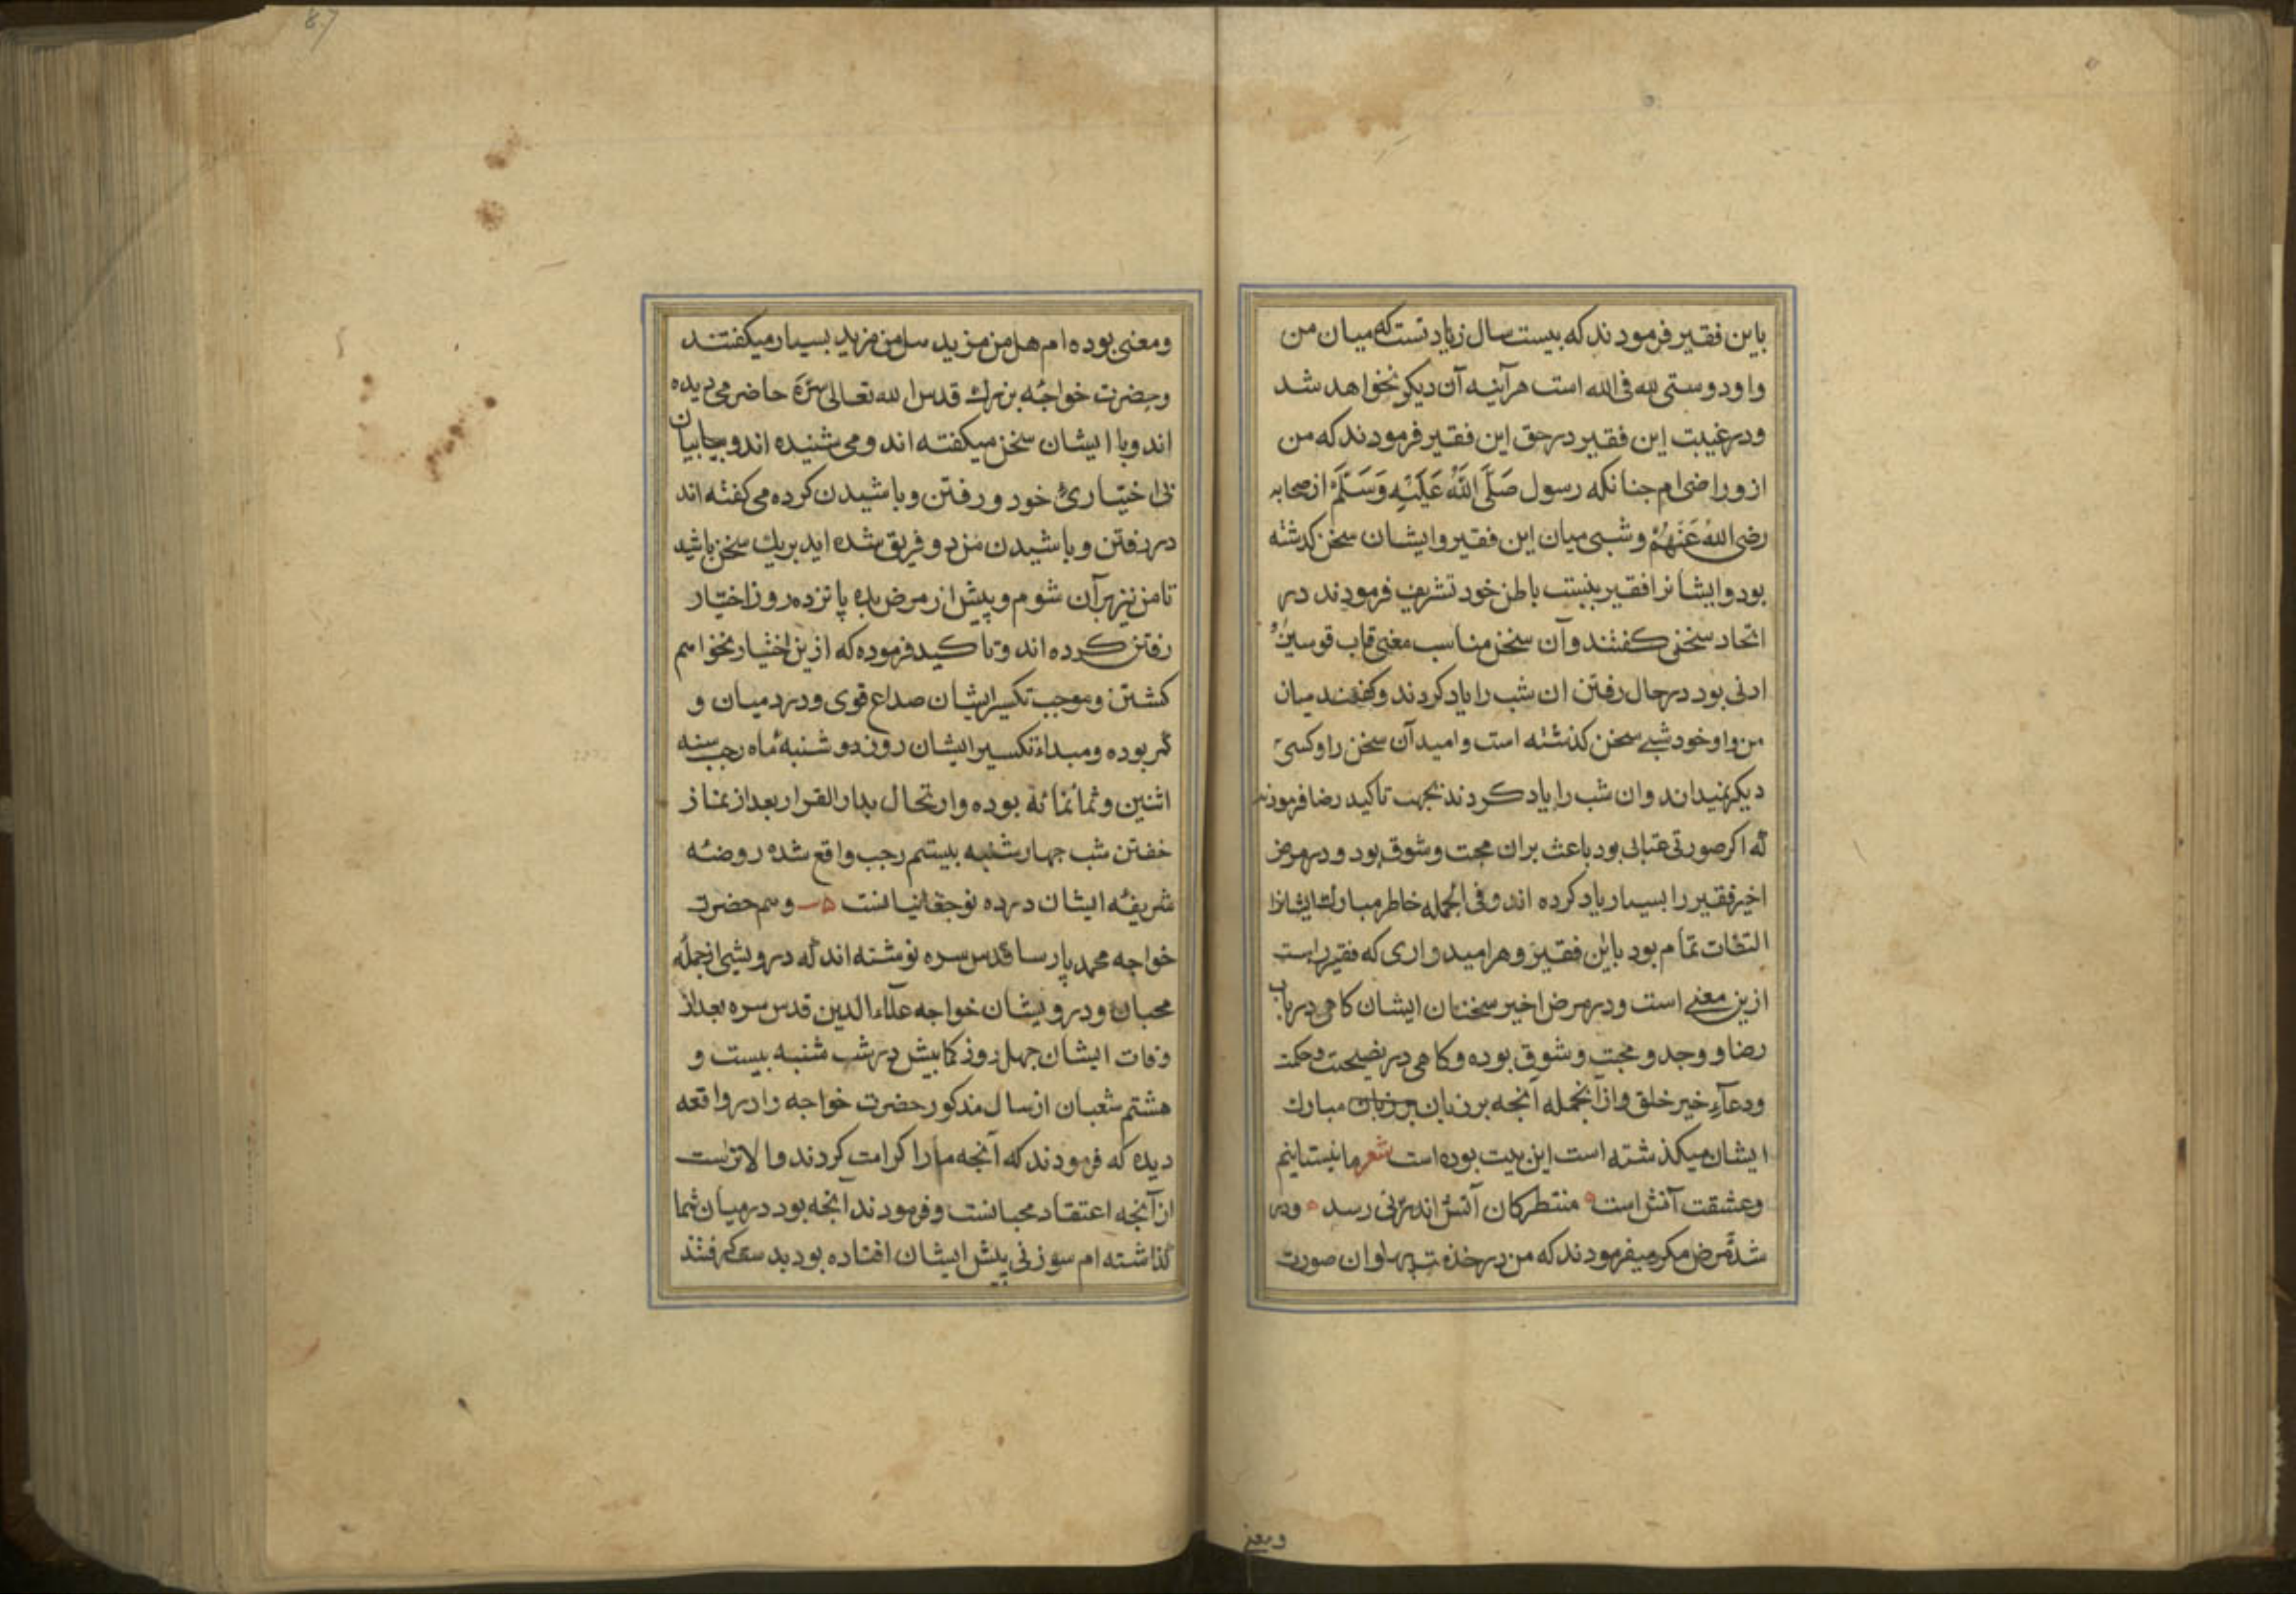 باین فقیر فرمودند که بیست سال زیادتست که میان من
و او دوستی لله فی الله است هرآینه آن دیکر نخواهد شد
و در غیبت این فقیر در حق این فقیر فرمودند که من
ازو راضی ام جنانکه رسول صَلَّی اللَّهُ عَلَیْهِ وَسَلَّمَ از صحابه
رضی اللهُ عَنْهُمْ و شبی میان این فقیر و ایشان سخن کذشته
بود و ایشانرا فقیر بنسبت باطن خود تشریف فرمودند در
اتحاد سخنی کفتند و آن سخن مناسب معنی قاب قوسین و
ادنی بود در حال رفتن ان شب را یاد کردند و کفتند میان
من و او خود شبی سخن کذشته است و امید آن سخن را و کسی
دیکر نمیداند و ان شب را یاد کردند بجهت تاکید رضا فرمودند
که اکر صورتی عتابی بود باعث بران محبت و شوق بود و در مرض
اخیر فقیر را بسیار یاد کرده اند و فی الجمله خاطر مبارک ایشانرا
التفات تمام بود باین فقیر و هر امیدواری که فقیر راست
ازین معنی است و در مرض اخیر سخنان ایشان کاهی در باب
رضا و وجد و محبت و شوق بوده و کاهی در نصیحت و حکمت
و دعآءِ خیر خلق و از انجمله آنجه بر زبان بر زبان مبارک
ایشان میکذشته است این بیت بوده است شعر ما نیستانیم
و عشقت آتش است منتظر کان آتش اندر نی رسد و در
شدت مرض مکرر میفرمودند که من در خذه ان صورت
ومعنی
ومعنی بوده ام هل من مزید هل من مزید بسیار میکفتند
و حضرت خواجهٔ بزرک قدس الله تعالی سرَّهُ حاضر می دیده
اند و با ایشان سخن میکفته اند و می شنیده اند و بیابیان
بی اختیاری خود و رفتن و باشیدن کرده می کفته اند
در رفتن و باشیدن من دو فریق شده اید بر یک سخن باشید
تا من نیز بر آن شوم و پیش از مرض بده پانزده روز اختیار
رفتن کرده اند و تاکید فرموده که ازین اختیار نخواهم
کشتن و موجب تکسر ایشان صداع قوی و درد میان و
کمر بوده و مبداء تکسیر ایشان روز دو شنبهٔ ماه رجب سنه
اثنین و ثمانمائه بوده و ارتحال بدار القرار بعد از نماز
خفتن شب جهارشنبه بیستم رجب واقع شده روضهٔ
شریفهٔ ایشان در ده نو جغانیانست و هم حضرت
خواجه محمد پارسا قدس سره نوشته اند که درویشی از جملهٔ
محبان و درویشان خواجه علآء الدین قدس سره بعد از
وفات ایشان جهل روز کمابیش در شب شنبه بیست و
هشتم شعبان از سال مذکور حضرت خواجه را در واقعه
دیده که فرمودند که آنجه ما را کرامت کردند والاترست
از آنجه اعتقاد محبانست و فرمودند آنجه بود در میان شما
کذاشته ام سوزنی پیش ایشان افتاده بود بدست کرفتند